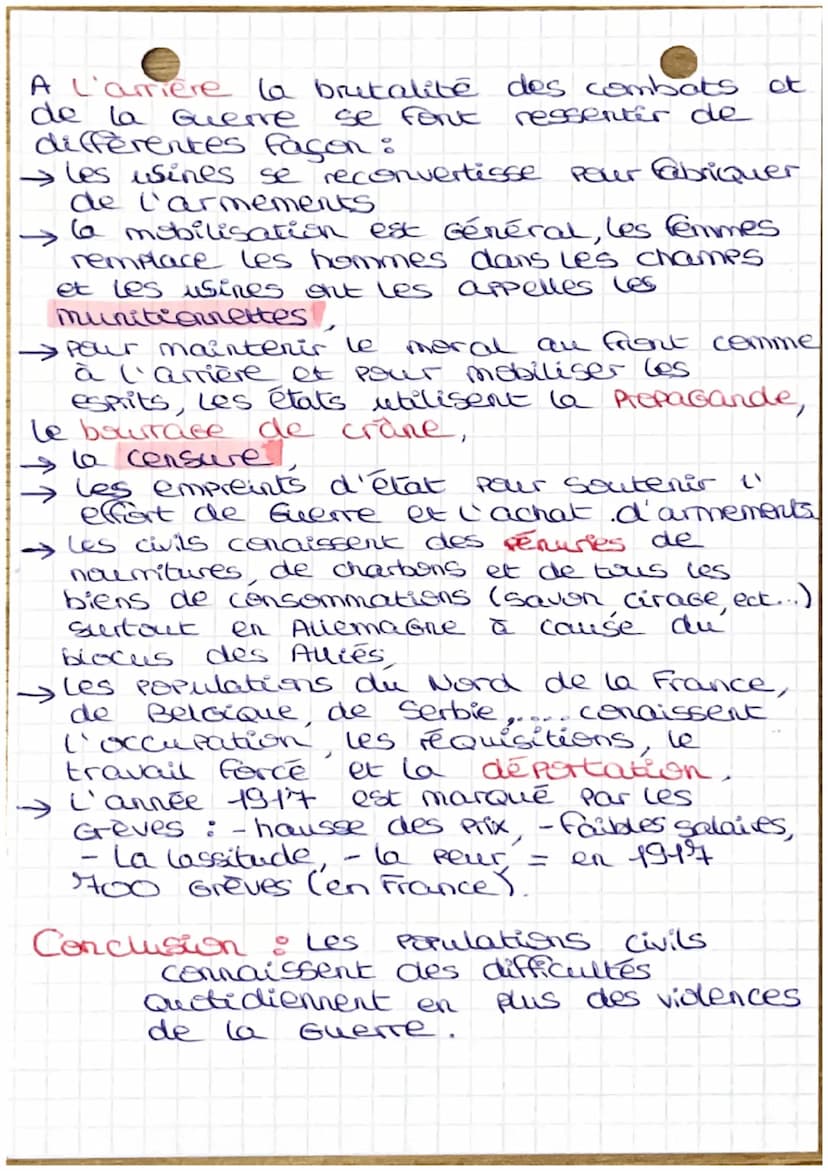 A l'arrière la brutalité des combats et
de la Guerre se font ressentir de
différentes façon :
→ les usines se reconvertisse pour fabriquer
de l'armements
→ la mobilisation est Général, les femmes
remplace les hommes dans les champs
et les usines ont les appelles les
munitionnettes,
→ pour maintenir le moral au front comme
à l'arrière et pour mobiliser les
esprits, les états utilisent la Propagande,
le bourrage de crâne,
→ la censure,
→ les empreints d'état pour soutenir l'
effort de Guerre et l'achat d'armements
→ les civils conaissent des pénuries de
nourritures, de charbons et de tous les
biens de consommations (savon, cirage, ect...)
surtout en Allemagne à cause du
blocus des Alliés,
→ les populations du Nord de la France,
de Belgique, de Serbie,.... conaissent
l'occupation, les réquisitions, le
travail forcé et la déportation,
→ L'année 1917 est marqué par les
Grèves : - hausse des prix, - faibles salaires,
- La lassitude, - la peur, = en 1917
700 Grèves (en France).
Conclusion : Les populations civils
connaissent des difficultés
quotidiennent en plus des violences
de la Guerre.